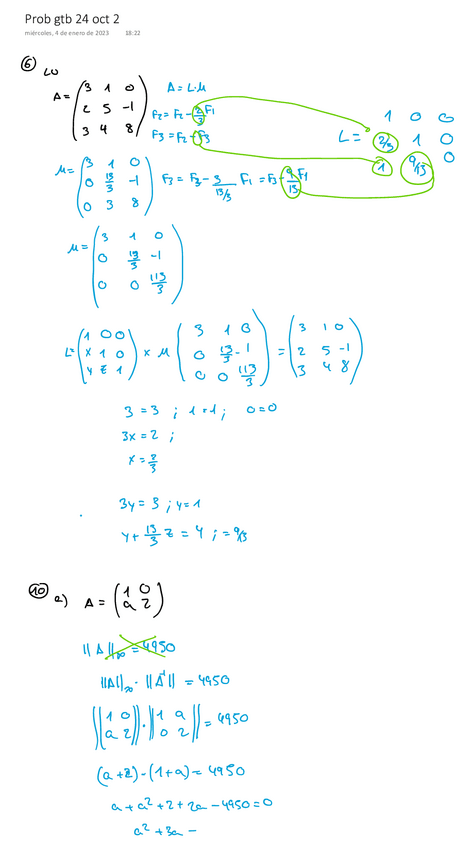 Prob gtb 24 oct 2
miércoles, 4 de enero de 2023 18:22
⑥ LU
A = (3 1 0; 2 5 -1; 3 4 8) A = L·U
F2 = F2 - 2/3 F1
F3 = F2 - F3
L =
1 0 0
2/3 1 0
1 9/13 0
U = (3 1 0; 0 13/3 -1; 0 3 8) F3 = F3 - 3/(13/3) F1 = F3 - 9/13 F1
U = (3 1 0; 0 13/3 -1; 0 0 113/3)
L = (1 0 0; x 1 0; y z 1) × U (3 1 0; 0 13/3 -1; 0 0 113/3) = (3 1 0; 2 5 -1; 3 4 8)
3 = 3 ; 1 = 1 ; 0 = 0
3x = 2 ;
x = 2/3
3y = 3 ; y = 1
y + 13/3 z = 4 ; = 9/13
⑩ a) A = (1 0; a 2)
||A||∞ = 4950
||A||∞ · ||A⁻¹|| = 4950
||1 0; a 2|| · ||1 a; 0 2|| = 4950
(a+2) - (1+a) = 4950
a + a² + 2 + 2a - 4950 = 0
a² + 3a -